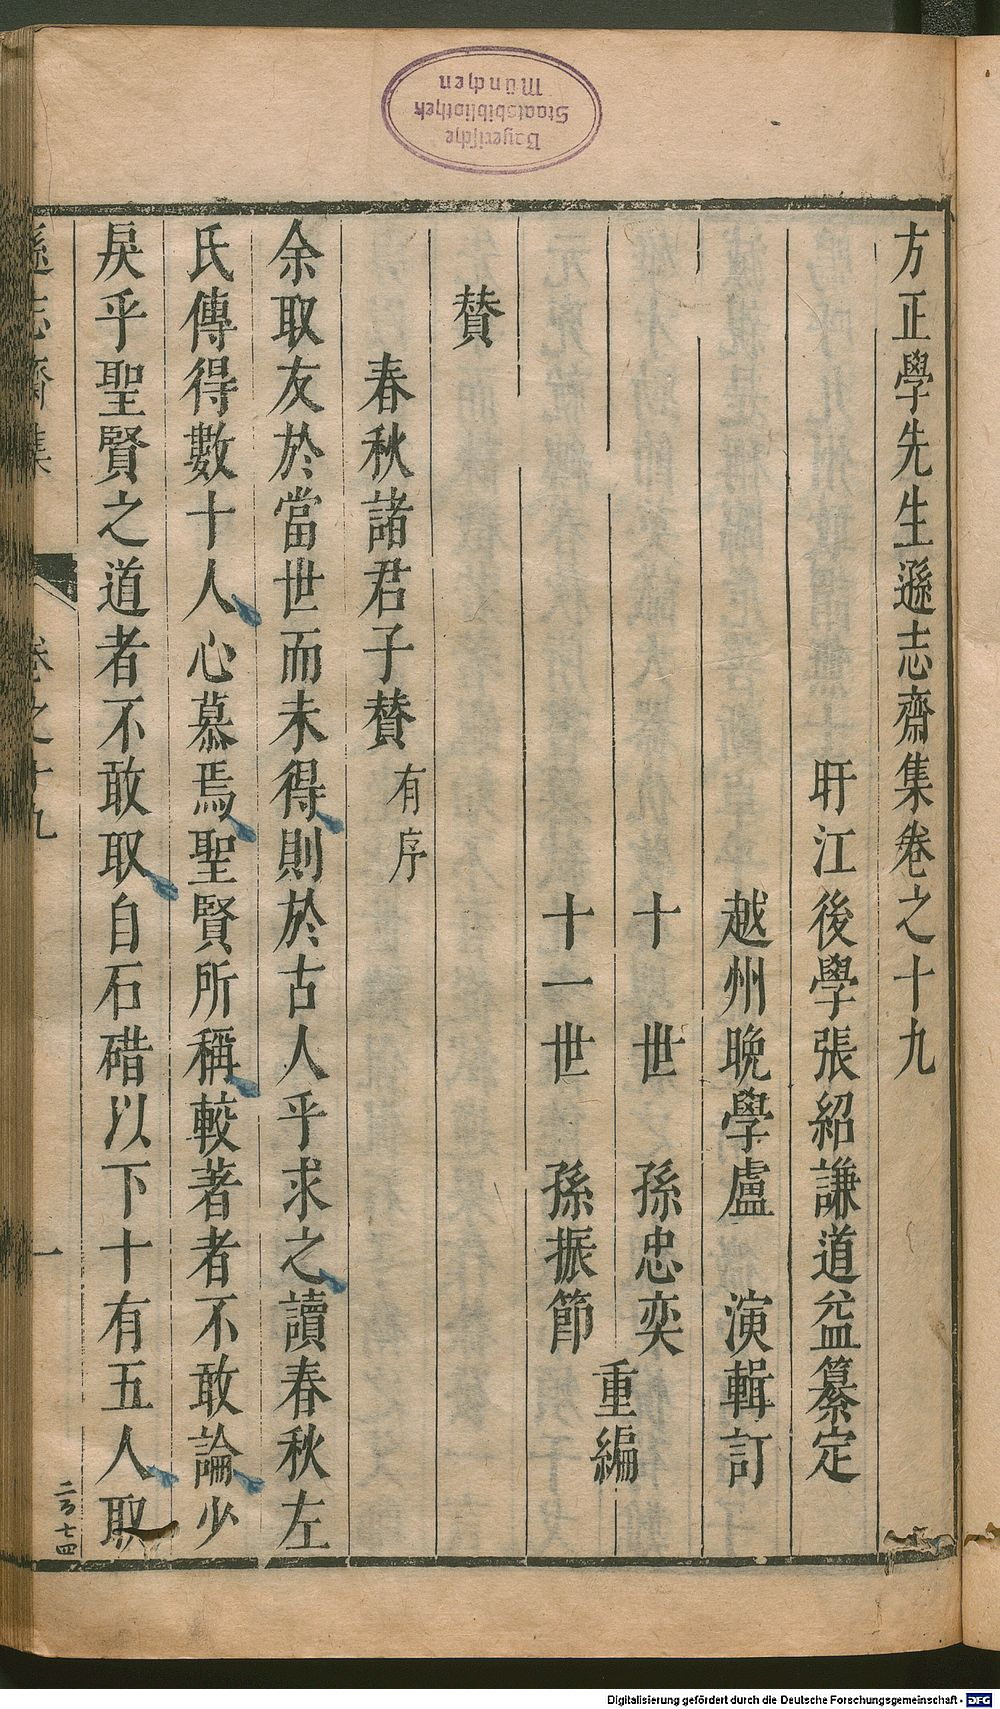 方正學先生遜志齋集卷之十九
盱江後學張紹謙道益纂定
越州晚學盧演輯訂
十世孫忠奕
十一世孫振節
重編
賛
春秋諸君子賛有序
余取友於當世而未得則於古人乎求之讀春秋左
氏傳得數十人心慕焉聖賢所稱較著者不敢論少
戾乎聖賢之道者不敢取自石碏以下十有五人取
遜志齋集
卷之十九
一
Bayerische
Staatsbibliothek
München
Digitalisierung gefördert durch die Deutsche Forschungsgemeinschaft - DFG